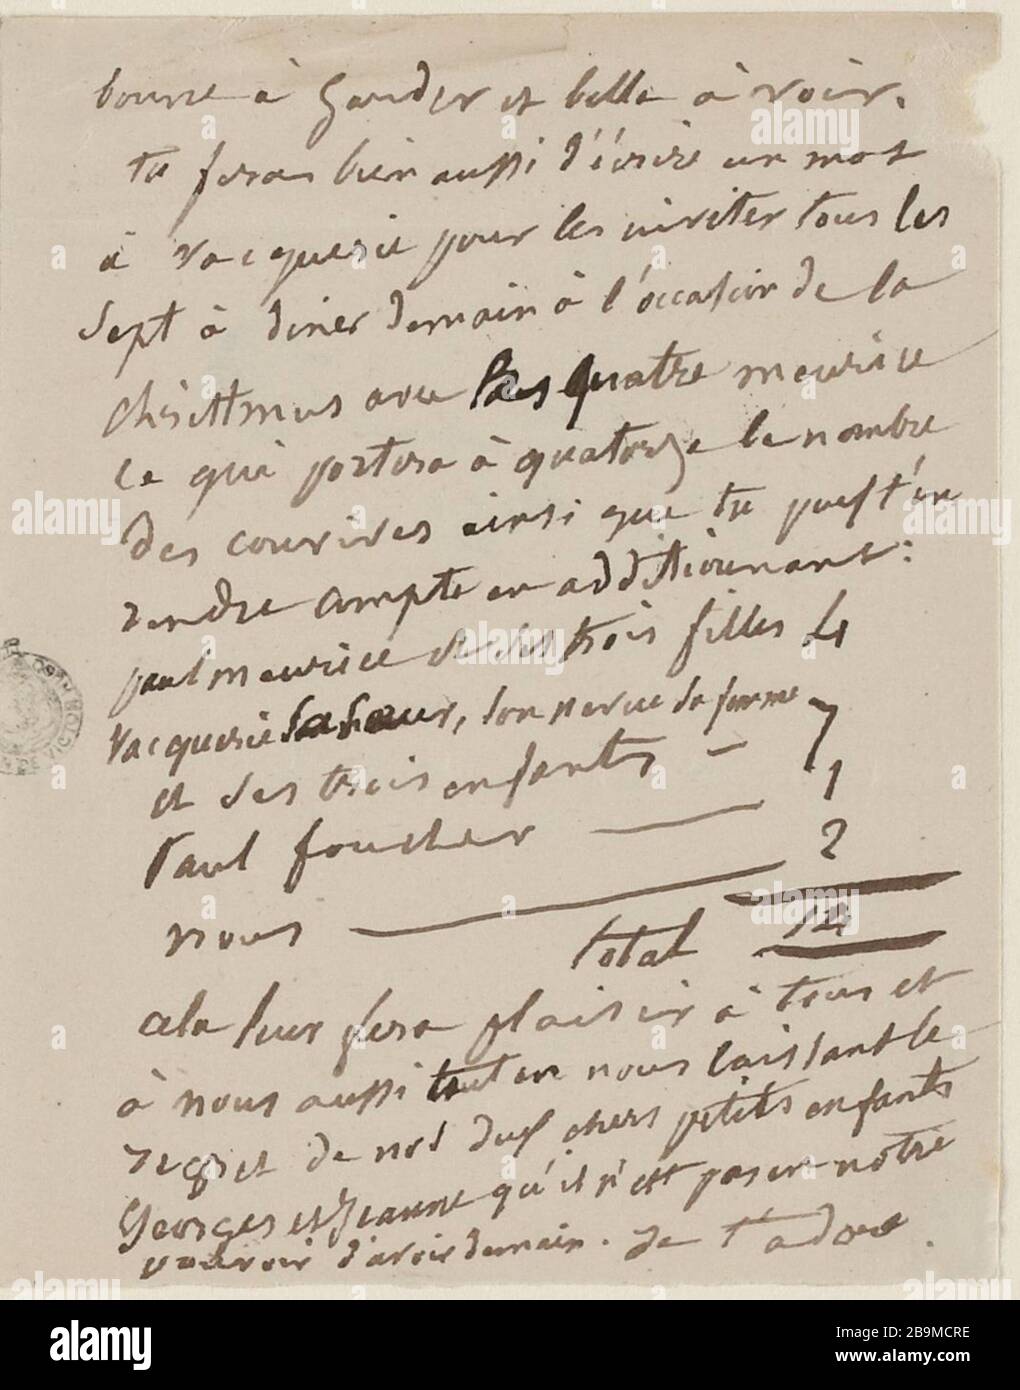 bourse à Gauder et belle à voir.
tu feras bien aussi d'écrire un mot
à vacquerie pour les inviter tous les
sept à diner demain à l'occasion de la
christmus avec les quatre meurice
ce qui portera à quatorze le nombre
des convives ainsi que tu peus t'en
rendre compte en additionnant :
paul meurice et ses trois filles 4
vacquerie sa sœur, son neveu sa femme
et ses trois enfants — 7
Paul foucher — 1
nous — 2
total 14
cela leur fera plaisir à tous et
à nous aussi tout en nous laissant le
regret de nos deux chers petits enfants
Georges et Jeanne qu'il n'est pas en notre
pouvoir d'avoir demain. Je t'adore.
alamy
Image ID: 2B9MCRE
www.alamy.com